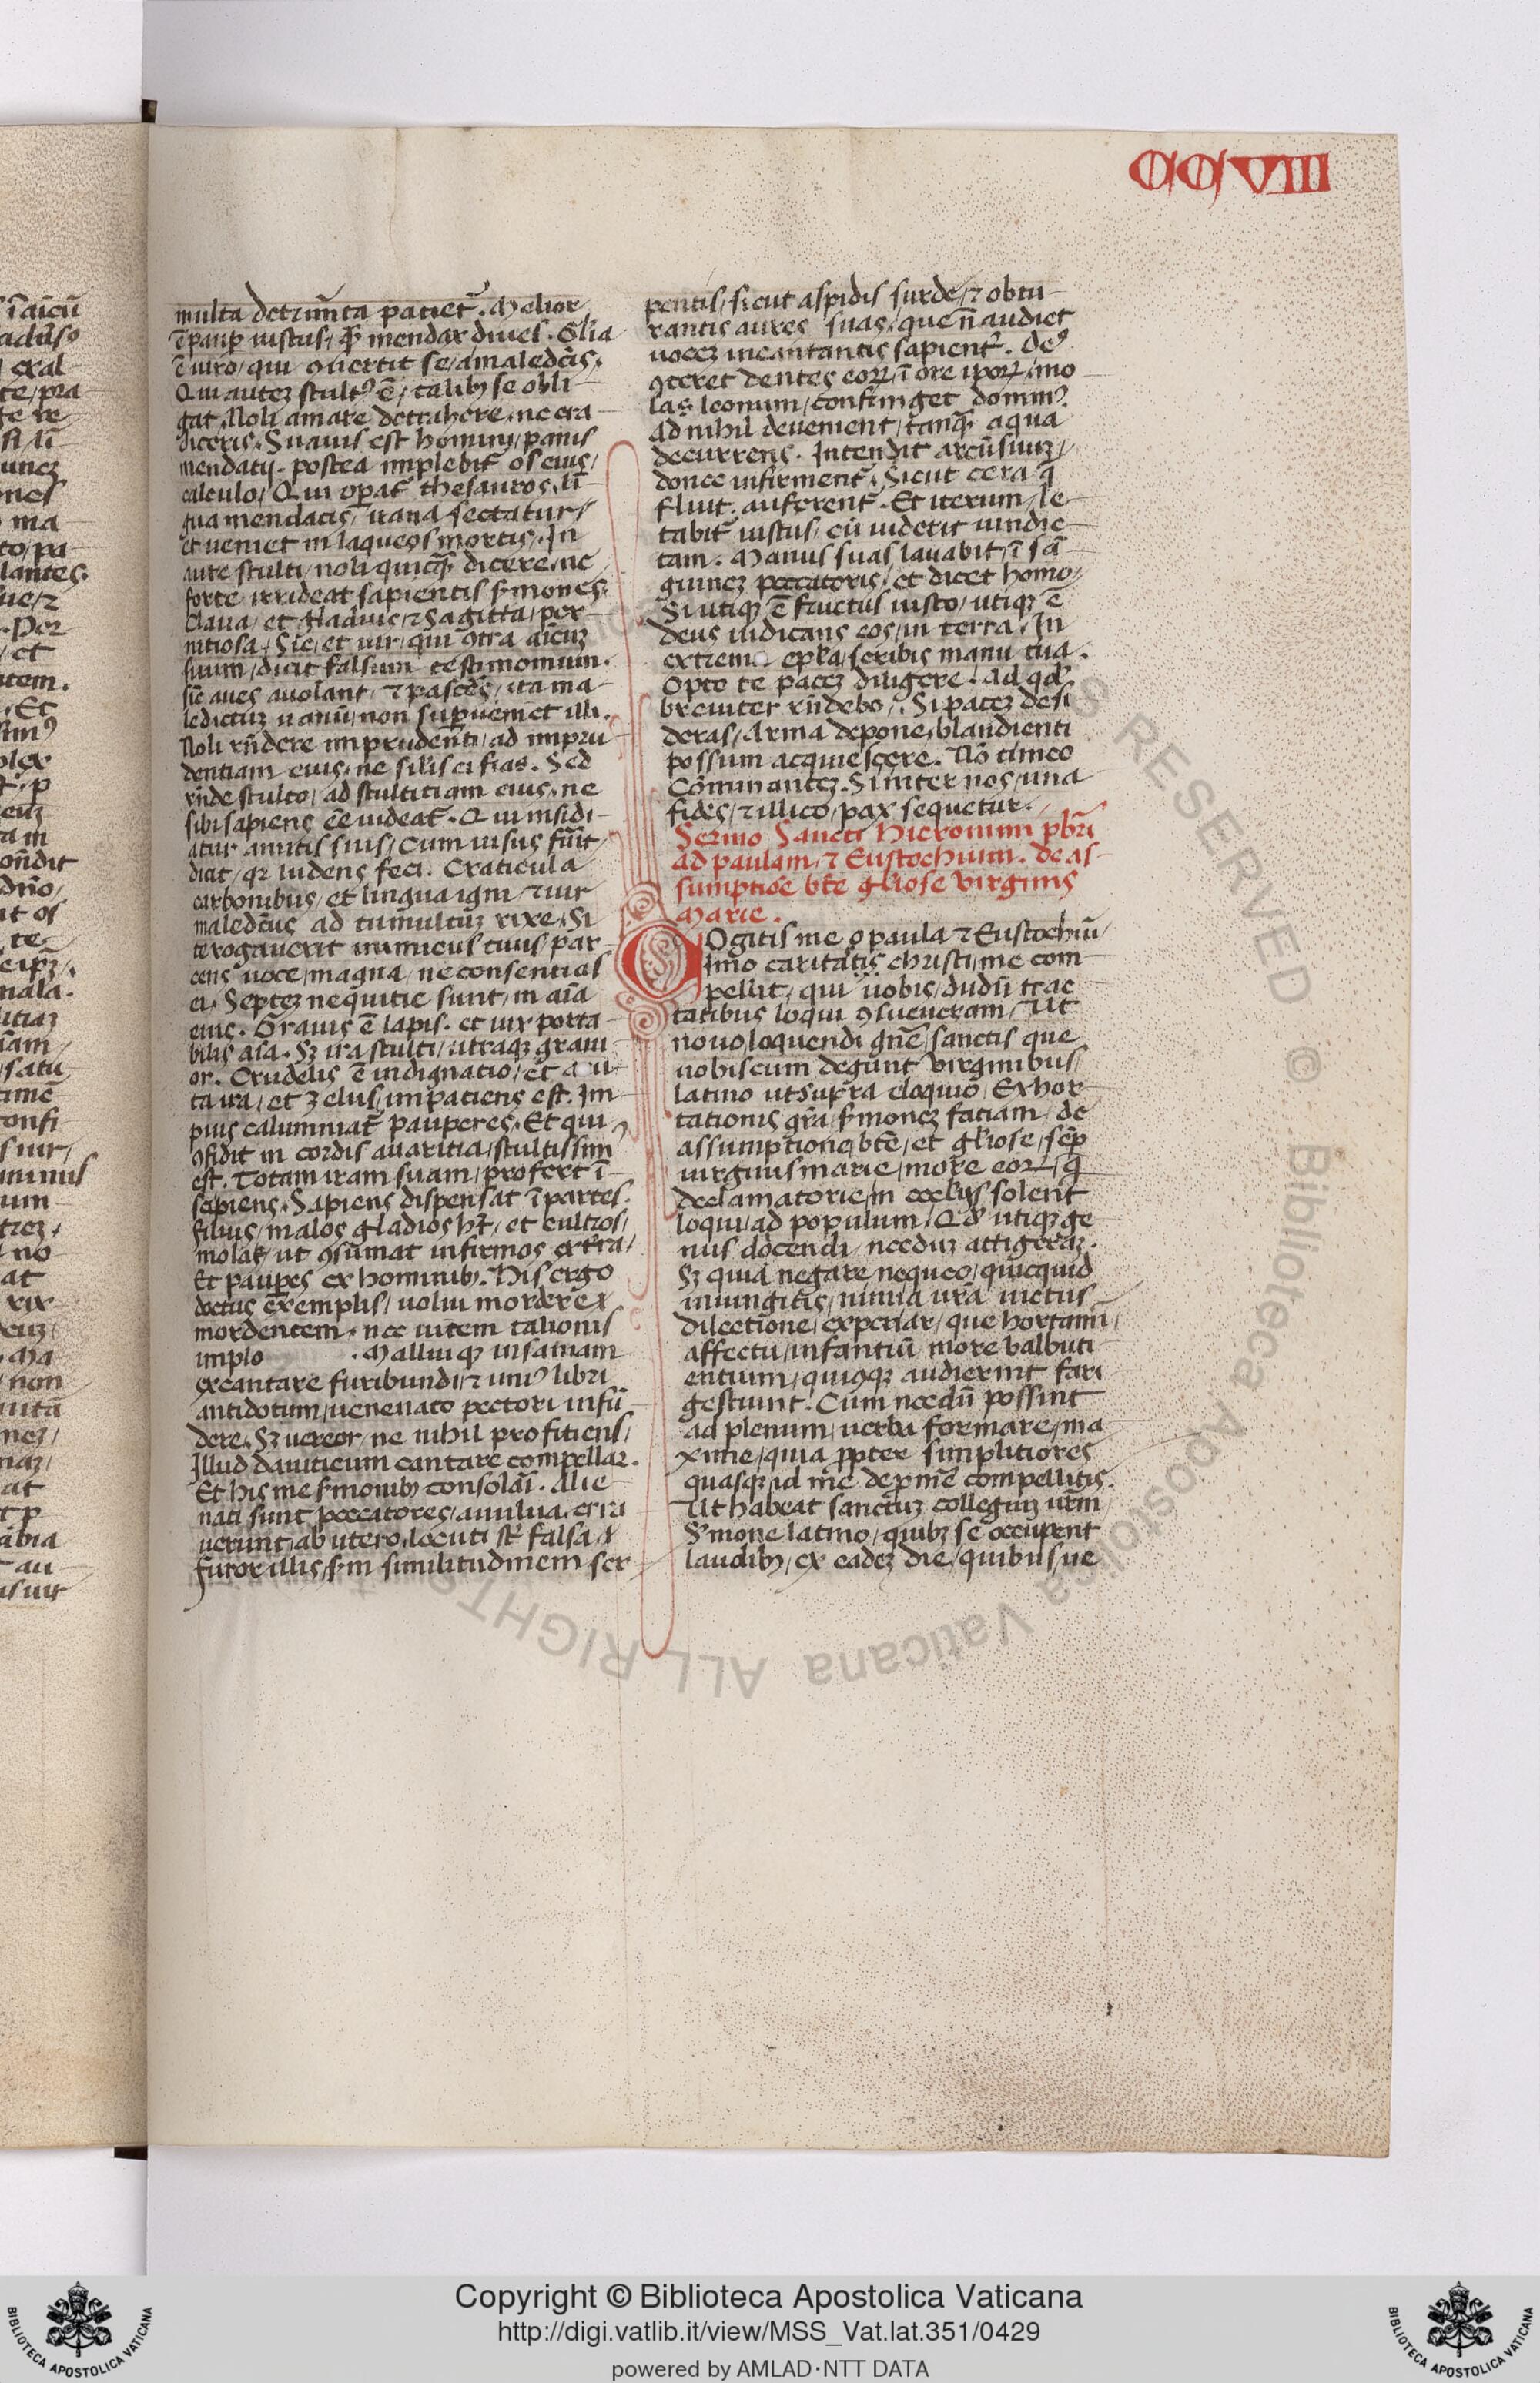 CCVIII
multa detrimēta patiet̄. Melior
ē paup iustus, q̄ mendax diues. Gl̄ia
ē uiro, qui ꝯuertit se, a maledc̄is.
Qui autez stult⁹ ē, talibꝫ se obli
gat. Noli amare detrahere, ne era
diceris. Suauis est homini, panis
mendatij. postea implebit̄ os eius,
calculo. Qui opat̄ thesauros, lī
gua mendacis, uana sectatur,
et ueniet in laqueos mortis. In
aure stulti, noli quicq̄ dicere, ne
forte irrideat sapientis s̄mones.
Claua, et gladius, ⁊ Sagitta, per
nitiosa. Sic, et uir, qui ꝯtra aīcuz
suum, dicit falsum testimonium.
sic̄ aues auolant, ⁊ passeēs, ita ma
ledictuz uanū, non supueniet illi.
Noli rn̄dere imprudenti, ad impru
dentiam eius, ne sil̄is ei fias. Sed
rn̄de stulto, ad stultitiam eius, ne
sibi sapiens eē uideat̄. Qui insidi
atur amicis suis, Cum uisus fūit,
dicit, qꝛ ludens feci. Craticula
carbonibus, et lingua igni, ⁊ uir
maledc̄us ad tumultuz rixe. Si
te rogauerit inimicus tuus par
cens uoce, magna, ne consentias
ei. Septez nequitie sunt, in aīa
eius. Grauis ē lapis. et uix porta
bilis aīa. Sꝫ ira stulti, utraqꝫ graui
or. Crudelis ē indignatio, et acu
ta ira, et zelus, impatiens est. Im
pius calumniat̄ pauperes. Et qui
ꝯfidit in cordis auaritia, stultissim⁹
est. Totam iram suam, profert ī
sapiens. Sapiens dispensat ī partes.
filius, malos gladios hꝫ, et cultros,
molat, ut ꝯsumat infirmos ex t̄ra,
Et paupes ex hominibꝫ. His ergo
doctus exemplis, nolui mordere
mordentem. nec uicem talionis
implo . Malluiqꝫ insaniam
excantare furibundi, ⁊ uni⁹ libri
antidotum, uenenato pectori infū
dere. Sꝫ uereor, ne nihil profitiens,
Illud dauiticum cantare compellar.
Et his me s̄monibꝫ consolari. Alie
nati sunt peccatores, a uulua. erra
uerunt, ab utero. locuti st̄ falsa.
furor illis, s̄m similitudinem ser
pentis, sicut aspidis surde, ⁊ obtu
rantis aures suas, que n̄ audiet
uocez incantantis sapient̄. De⁹
ꝯteret dentes eoꝝ, ī ore ipoꝝ. mo
las leonum, confringet domin⁹.
Ad nihil deuenient, tanq̄ aqua
decurrens. Intendit arcū suuz,
donec infirment̄. Sicut cera q̄
fluit, auferent̄. Et iterum, le
tabit̄ iustus, cū uiderit uindic
tam. Manus suas lauabit, ī san
guinez peccatoris, et dicet homo,
Si utiqꝫ ē fructus iusto, utiqꝫ ē
deus iudicans eos, in terra. In
extrema ep̄la, scribis manu tua.
Opto te pacez diligere. Ad qd̄
breuiter rn̄debo. Si pacez desi
deras, Arma depone, blandienti
possum acquiescere. Nō timeo
Cōminantez. Si inter nos, una
fides, ⁊ illico, pax sequetur.
Sermo Sancti Hieronimi pb̄ri
ad paulam, ⁊ Eustochium. de as
sumptiōe bt̄e gl̄iose Virginis
Marie.
COgitis me o paula ⁊ Eustochiū,
īmo caritatis christi, me com
pellit, qui uobis, dudū trac
tatibus loqui ꝯsueueram, Ut
nouo, loquendi gn̄e, sanctis que
uobiscum degunt uirginibus,
latino ut supra eloquio, Exhor
tationis gr̄a, s̄monez fatiam, de
assumptione, bt̄e, et gl̄iose, semp
uirginis marie, more eoꝝ, q̄
declamatorie, in eccl̄ijs solent
loqui, ad populum. Qd̄ utiqꝫ ge
nus docendi, necduz attigeraz.
Sꝫ quia negare nequeo, quicquid
iniungitis, nimia ur̄a uictus
dilectione, experiar, que hortami,
affectu, infantiū more balbuti
entium, quicqꝫ audierint fari
gestiunt. Cum necdū possint
ad plenum, uerba formare, ma
xime, quia ppter simplitiores
quasqꝫ, id me depmē compellitis.
Ut habeat sanctuz collegiuz ur̄m,
S̄mone latino, quibꝫ se occupent
laudibꝫ, ex eadez die, quibusue
Copyright © Biblioteca Apostolica Vaticana
http://digi.vatlib.it/view/MSS_Vat.lat.351/0429
powered by AMLAD·NTT DATA